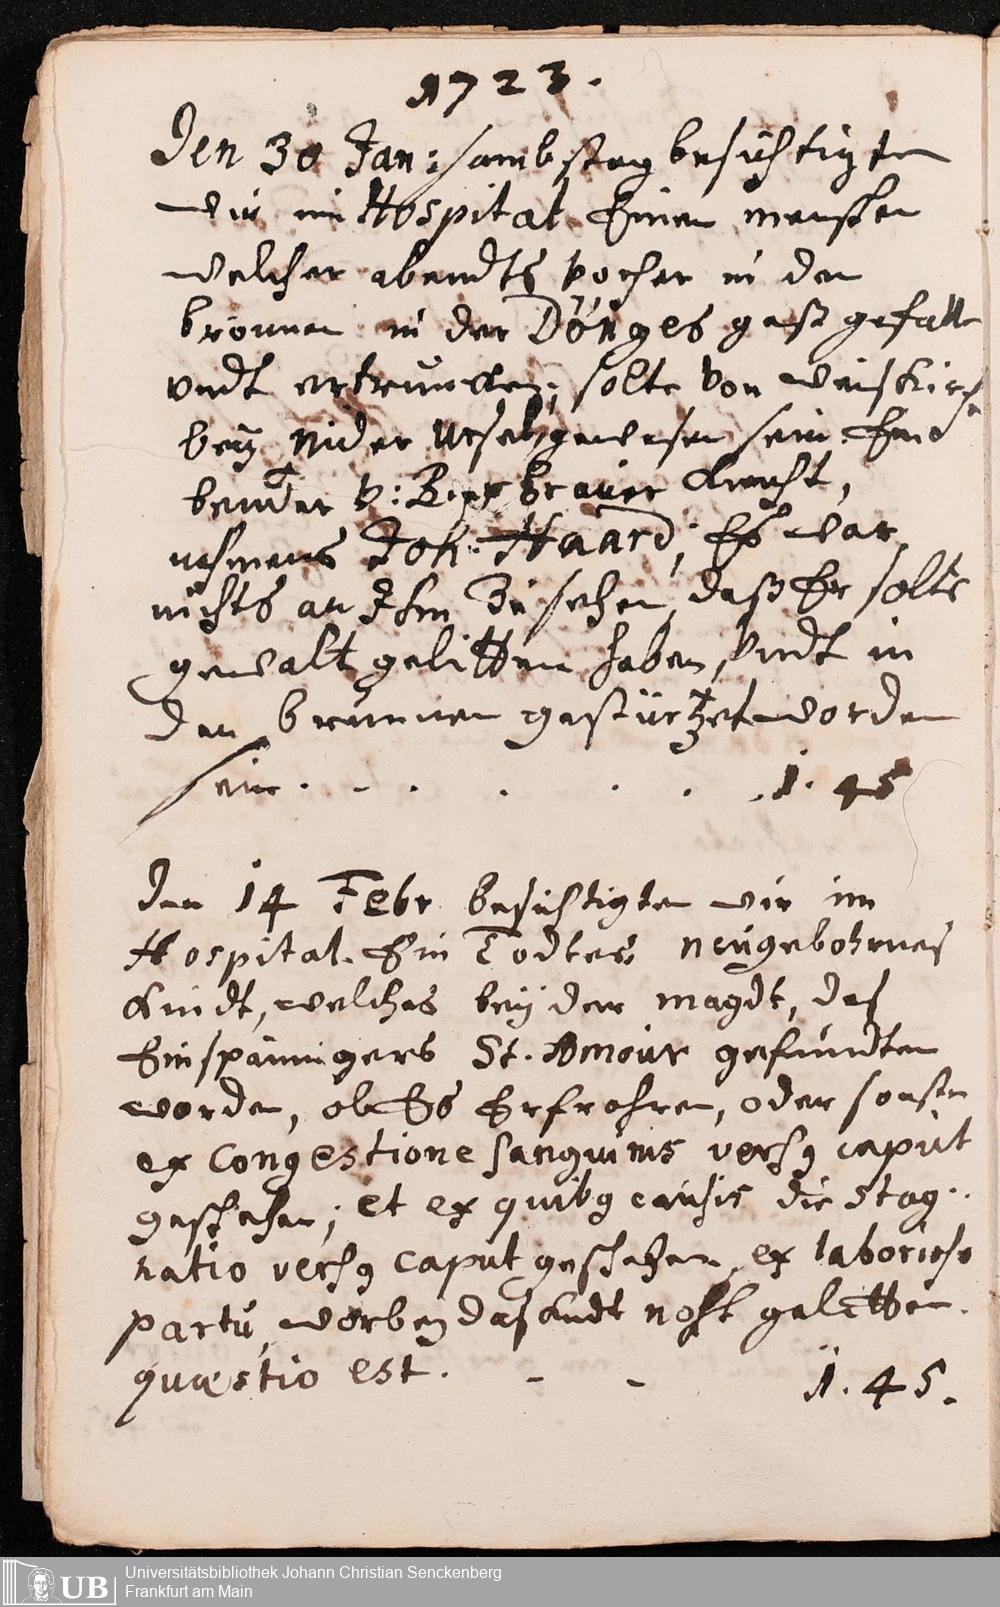 1723.
Den 30 Jan: sambstag besichtigten
wir im Hospital Einen menschen
welcher abendts vorher in den
bronnen in der Dönges gaß gefallen
undt ertruncken; solte von weiskirchen
bey Nider Ursel gewesen sein Ein
bender v: Bierbrauer Knecht,
nahmens Joh. Haard; Es war
nichts an Ihm Zu sehen, daß Er solte
gewalt gelitten haben, undt in
den brunnen gestürtzet worden
sein. - . . . . . 1. 45
Den 14 Febr besichtigten wir im
Hospital. Ein Todtes neugebohrnes
Kindt, welches bey der magdt, des
Einspänningers St. Amour gefundten
worden, ob Es Erfrohren, oder sonsten
ex Congestione sanguinis versq caput
geschehen; et ex quibq causis die stag-
natio versq caput geschehen, ex laborioso
partu, worbey das Kindt noht gelitten.
quæstio est. - - 1. 45.
UB
Universitätsbibliothek Johann Christian Senckenberg
Frankfurt am Main